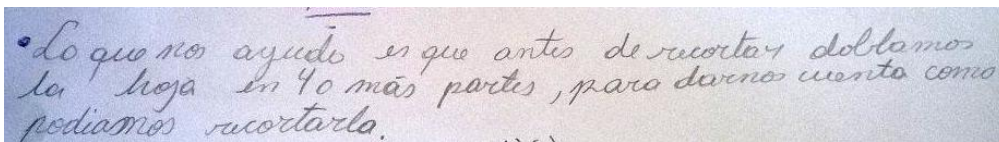 •Lo que nos ayudo es que antes de recortar doblamos
la hoja en 4 o más partes, para darnos cuenta como
podiamos recortarla.